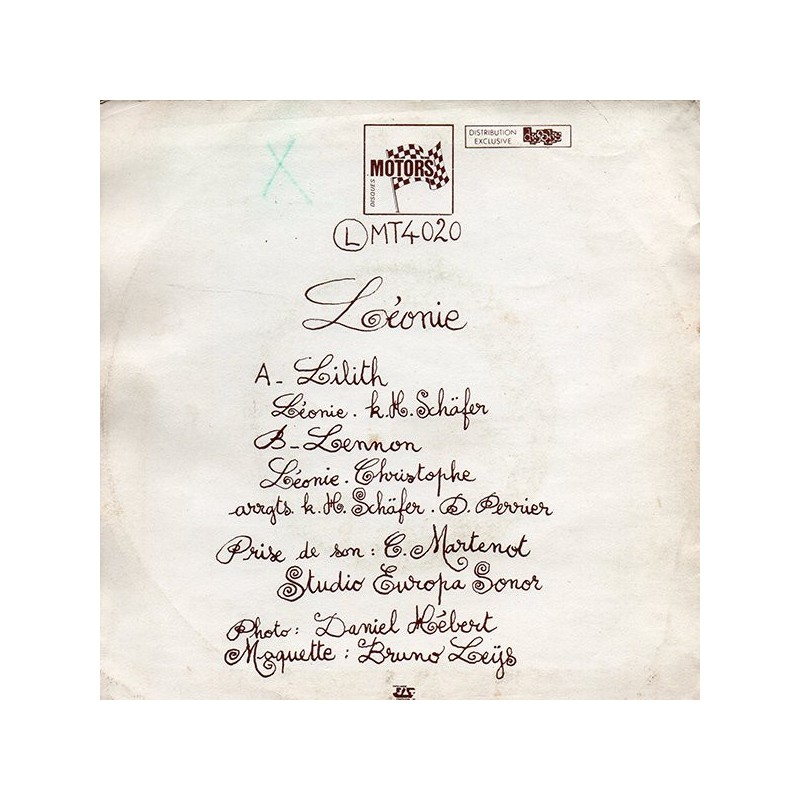 DISTRIBUTION
EXCLUSIVE
DISQUES
MOTORS
L MT4020
Léonie
A - Lilith
Léonie. k.H. Schäfer
B - Lennon
Léonie. Christophe
arrgts. k.H. Schäfer. D. Perrier
Prise de son : C. Martenot
Studio Europa Sonor
Photo : Daniel Hébert
Maquette : Bruno Leÿs